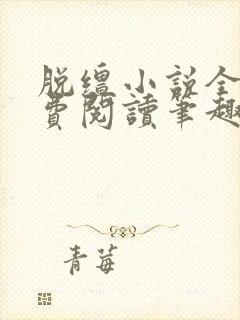 脱缰小说全
费阅讀筆趣
青莓